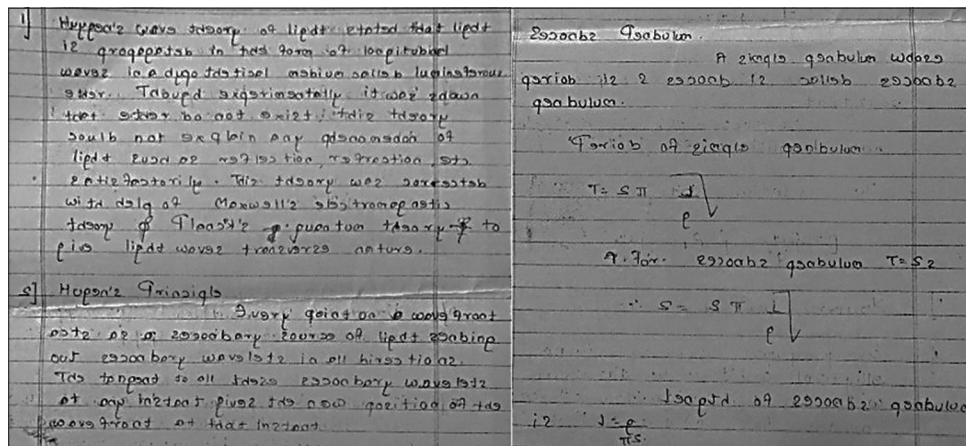 1] Huygen's wave theory of light stated that light
is propagated in the form of longitudinal
waves in a hypothetical medium called luminiferous
ether. Though experimentally it was shown
that ether do not exist; this theory
could not explain any phenomenon of
light such as reflection, refraction, etc
satisfactorily. This theory was corrected
with help of Maxwell's electromagnetic
theory & Planck's quantum theory to
give light waves transverse nature.
2] Hugen's Principle
Every point on a wave front
acts as a secondary source of light sending
out secondary wavelets in all directions.
The tangent to all these secondary wavelets
at any instant gives the new position of the
wave front at that instant.
Seconds Pendulum.
A simple pendulum whose
period is 2 second is called seconds
pendulum.
Period of simple pendulum.
T = 2π √l/g
For seconds pendulum T = 2s
∴ 2 = 2π √l/g
∴ length of seconds pendulum
is l = g/π²